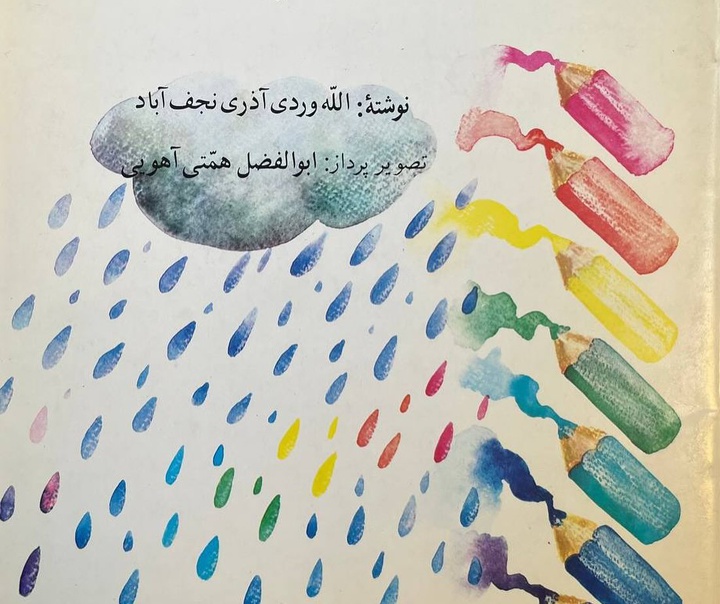 نوشتهٔ: اللّه وردی آذری نجف آباد
تصویر پرداز: ابوالفضل همّتی آهویی